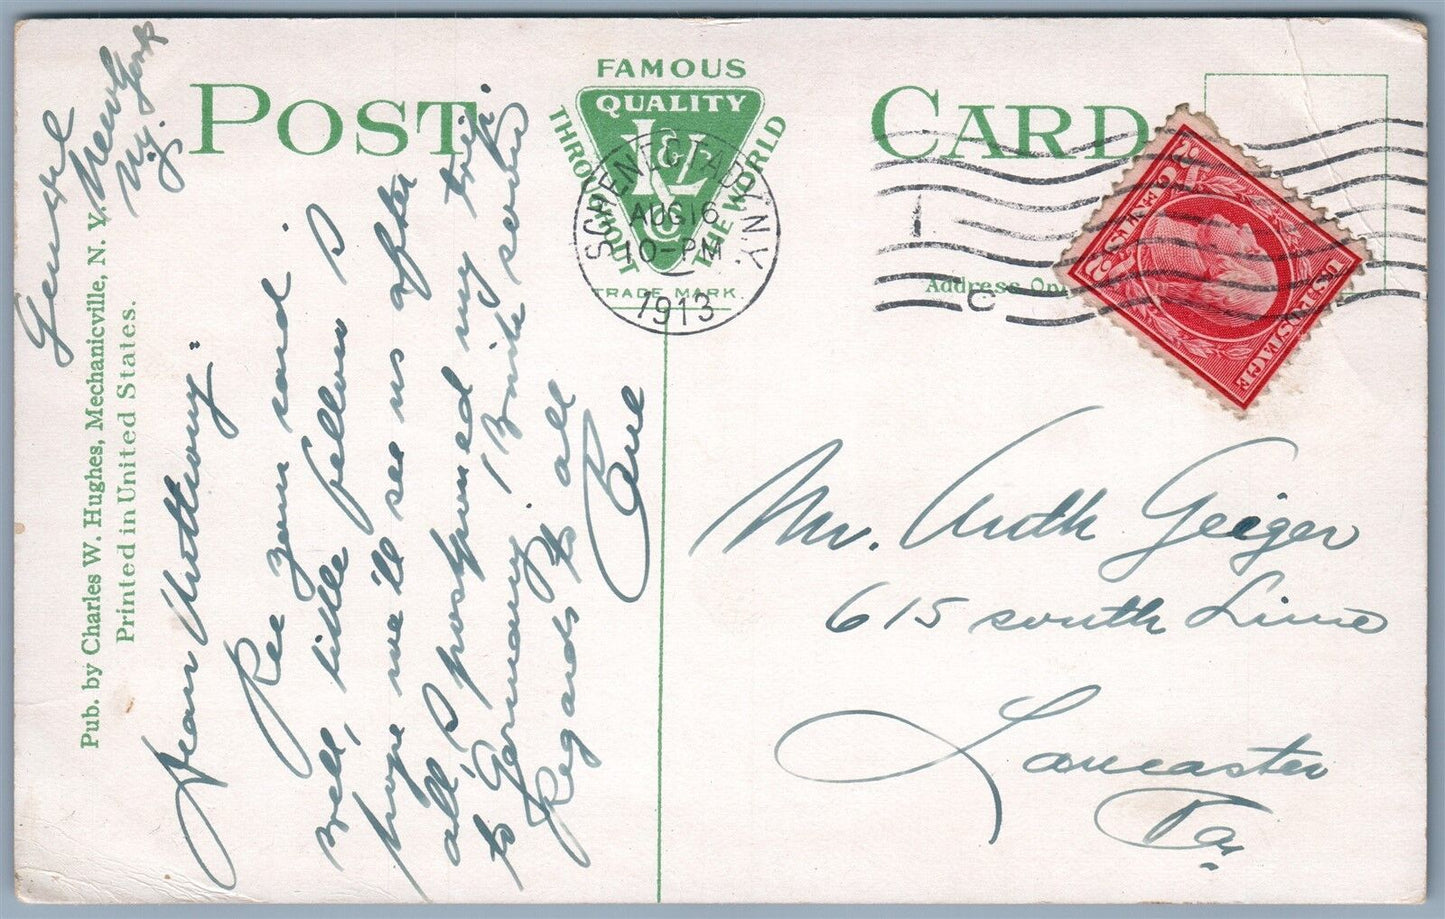 POST CARD
FAMOUS
QUALITY
THROUGHOUT THE WORLD
L&P
CO
TRADE MARK.
SCHENECTADY N.Y.
AUG 16
10-PM
1913
1
C
Address On
U.S. POSTAGE
2 CENTS 2
Pub. by Charles W. Hughes, Mechanicville, N. Y.
Printed in United States.
New York
N.Y.
Dear Anthony:
Rec your card
well, little fellow I
hope we'll see us after
all I postponed my trip
to Germany. Write soon
Regards to all
Carl
Mr. Anth Geiger
615 south Lime
Lancaster
Pa.